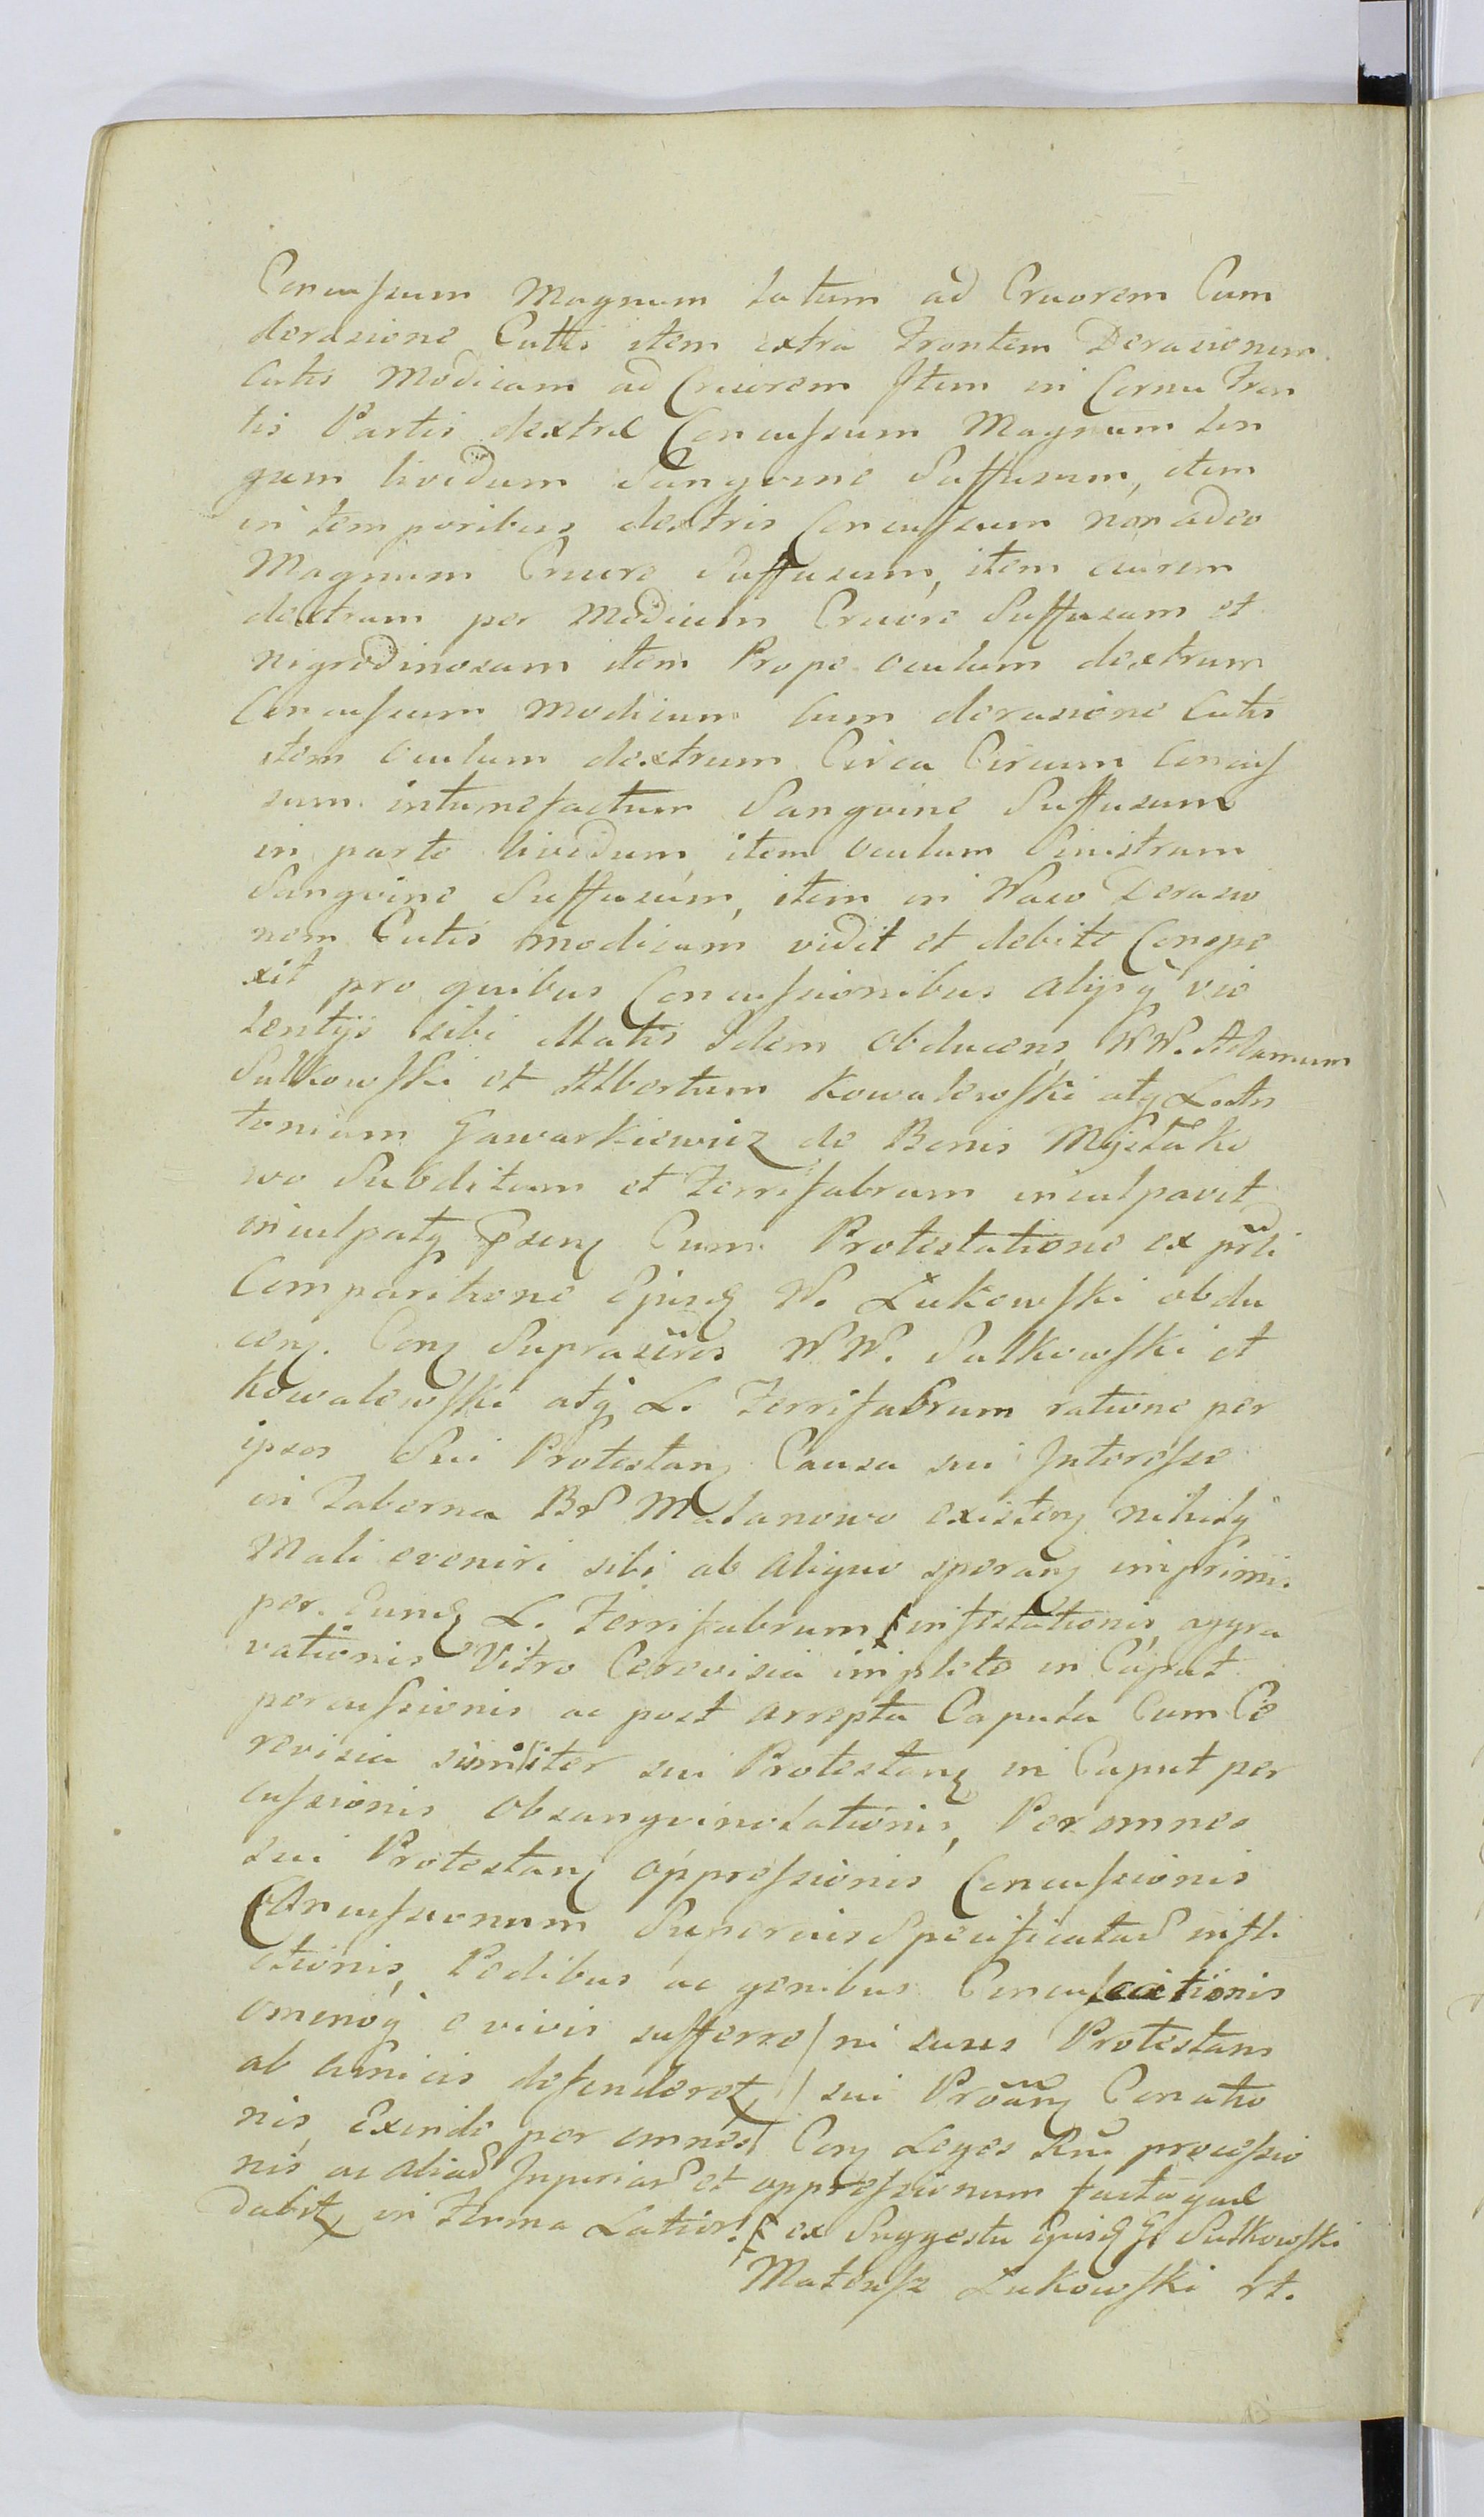 Concussum Magnum latum ad Cruorem Cum
derasione Cutis item extra Frontem Derasionem
Cutis Modicam ad Cruorem Item in Cornu Fron
tis Partis dextræ Concussum Magnum lon
gum lividum Sangvine Suffusum, item
in temporibus dextris Concussum non adeo
Magnum Cruore Suffusum, item aurem
dextram per Modium Cruore Suffusam et
nigredinosam item Prope oculum dextrum
Concussum modicum cum derasione Cutis
item Oculum dextrum Circa Circum concus
sum intumefactum Sangvine Suffusum
in parte lividum, item oculum Sinistrum
Sangvine Suffusum, item in Naso Derasio
nem Cutis modicam vidit et debite Conspe
xit pro quibus Concussionibus alijsq vio
lentijs sibi illatis Idem Obducens WW. Adamum
Sulkowski et Albertum Kowalewski atq L. An
tonium Gawarkiewicz de Bonis
wo Subditum et Ferrifabrum inculpavit
inculpatq Cum Protestatione ex
Comparitione Ejusd W. Lukowski obdu
cen. Con W W. Sulkowski et
Kowalewski atq L. Ferrifabrum ratione per
ipsos Sui Protestan Causa sui Interesse
in Taberna Malanowo existen nihilq
Mali eveniri sibi ab aliquo speran imprimis
per Eund L. Ferrifabrum infestationis, aggra
vationis Vitro Cerevisia impleto in Caput
percussionis ac post arrepta Caputa Cum Ce
revisia similiter sui Protestan in Caput per
cussionis Obsangvinolationis, Per omnes
sui Protestan oppressionis Concussionis
Concussionum Superius Specificatar infli
ctionis, Pedibus ac genibus
omenoq e vivis sufferre / ni suus Protestans
ab amicis defenderet / sui Conatio
nis, Exinde per omnes Con Leges processio
nis ac aliar Injuriar et oppressionum facta quæ
dabit in Termo Latior ex Suggestu Ejusd G. Sulkowski
Mateusz Lukowski rt.